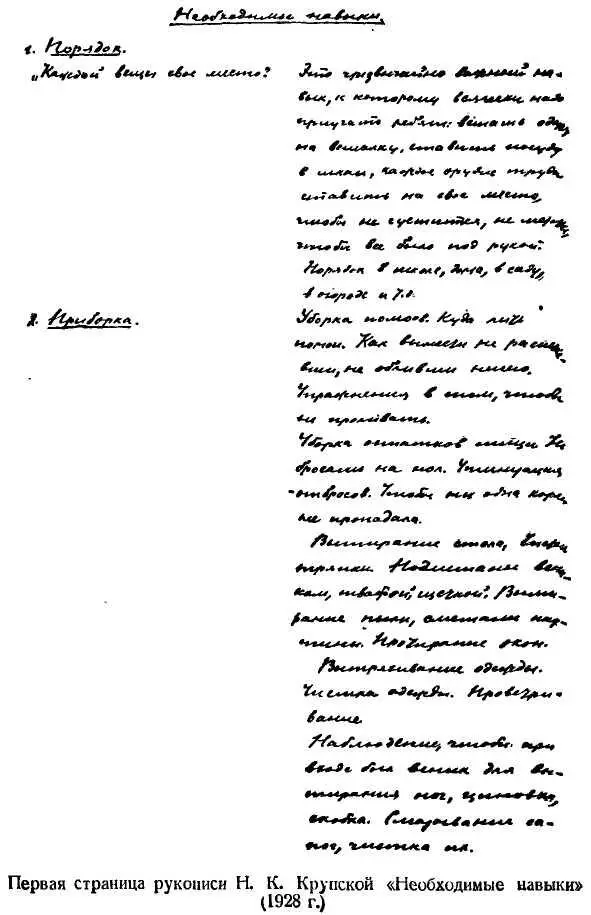 Необходимые навыки.
1. Порядок.
„Каждой вещи свое место"
Это чрезвычайно важный на-
вык, к которому всячески надо
приучать ребят: вешать одежду
на вешалку, ставить посуду
в шкап, каждое орудие труда
ставить на свое место,
чтобы не суетиться, не
чтобы все было под рукой.
Порядок в школе, дома, в саду,
в огороде и т.д.
2. Приборка.
Уборка помоев. Куда лить
помои. Как вынести не распле-
скавши, не обливши никого.
Упражнения в том, чтобы
не проливать.
Уборка остатков пищи. Не
бросать на пол. Утилизация
отбросов. Чтобы ни одна корка
не пропадала.
Вытирание стола,
тряпки. Подметание вени-
ком, шваброй, щеткой. Выти-
рание пыли, сметание пау-
тины. Протирание окон.
Вытряхивание одежды.
Чистка одежды. Проветри-
вание.
Наблюдение, чтобы при
входе был веник для вы-
тирания ног, циновка,
скобка. Смазывание са-
пог, чистка их.
Первая страница рукописи Н. К. Крупской «Необходимые навыки»
(1928 г.)